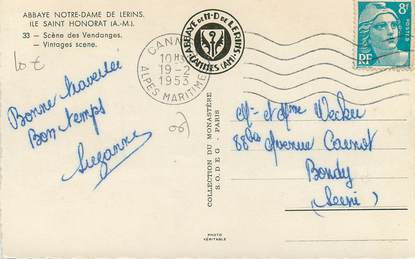 ABBAYE NOTRE-DAME DE LERINS.
ILE SAINT HONORAT (A.-M.).
33 — Scène des Vendanges.
- Vintages scene.
10 €
Bonne traversée
Bon temps
Suzanne
CANN
10H
19-2
1953
ALPES MARITIMES
ABBAYE DE N-D DE LERINS
CANNES (AM)
8F
POSTES
RF
COLLECTION DU MONASTÈRE
S.O.D.E.G. - PARIS
PHOTO
VÉRITABLE
06
Mr et Mme
88bis Avenue Carnot
Bondy
(Seine)